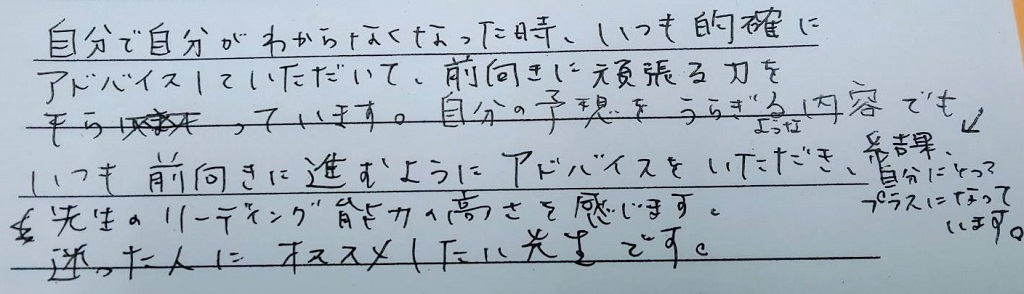 自分で自分がわからなくなった時、いつも的確に
アドバイスしていただいて、前向きに頑張る力を
もらっています。自分の予想をうらぎるような内容でも
いつも前向きに進むようにアドバイスをいただき、
結果、
自分にとって
プラスになって
います。
先生のリーディング能力の高さを感じます。
迷った人にオススメしたい先生です。